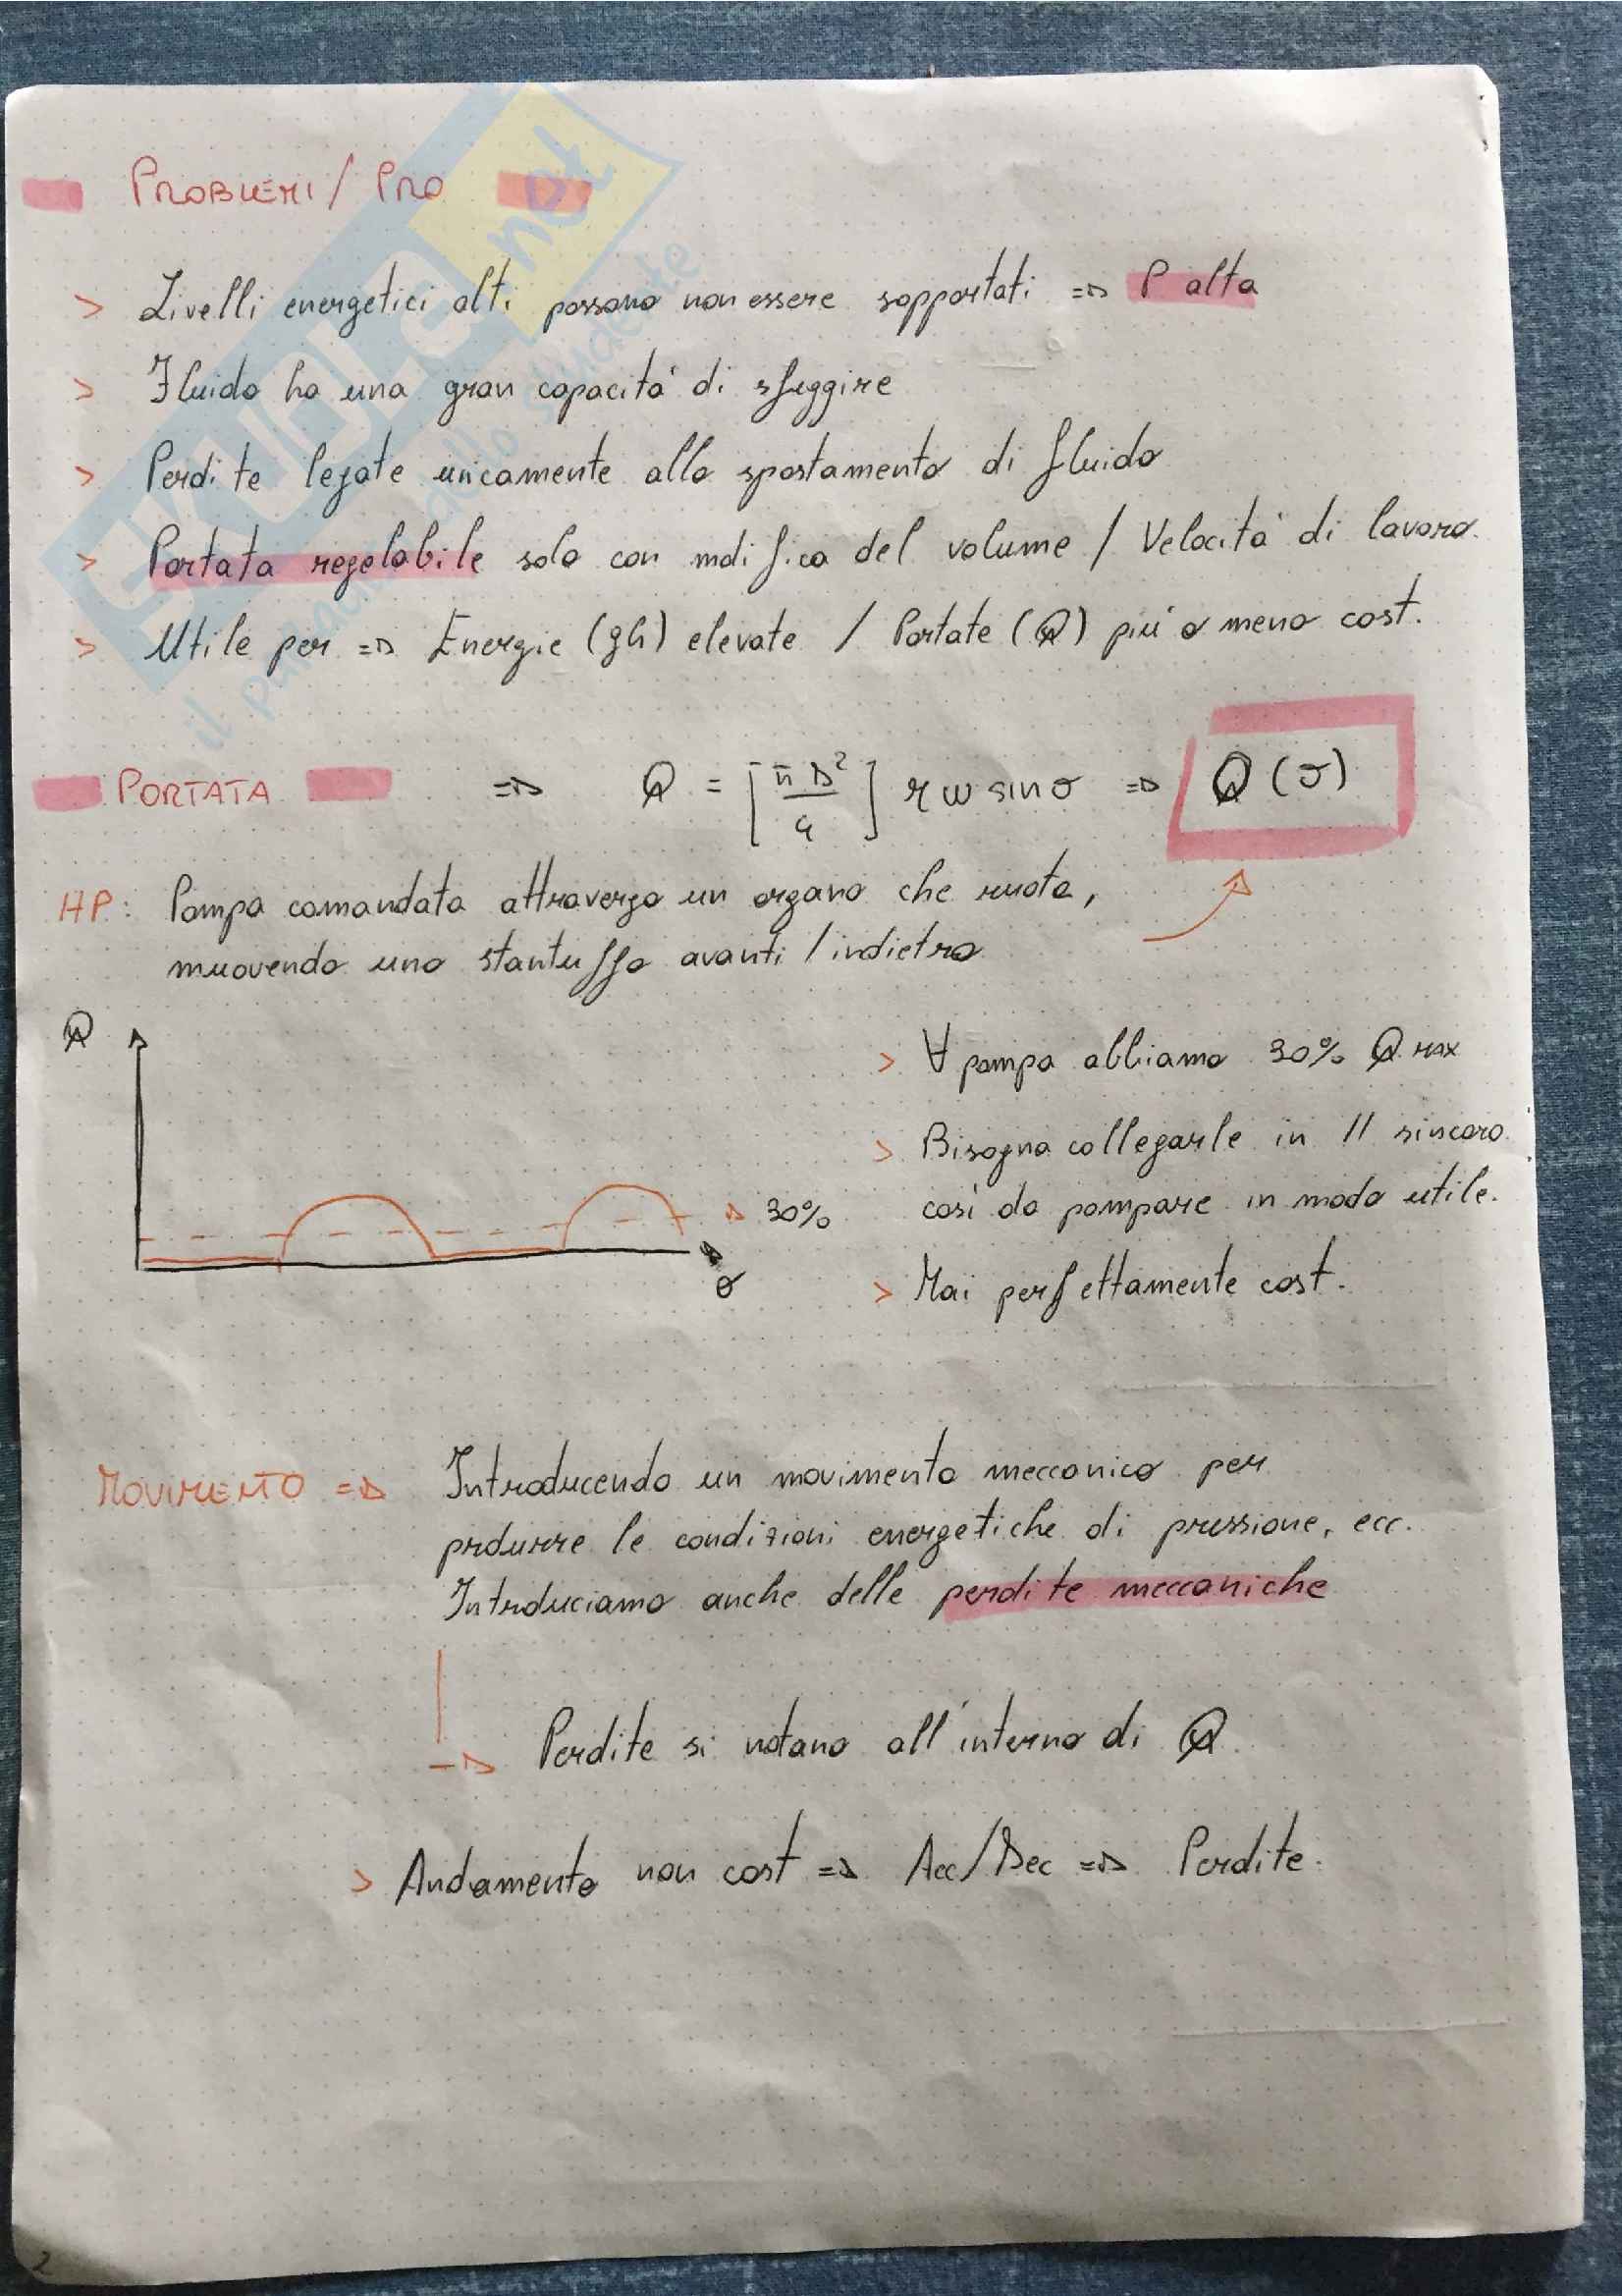 PROBLEMI / PRO
> Livelli energetici alti possono non essere sopportati => P alta
> Fluido ha una gran capacità di sfuggire
> Perdite legate unicamente allo spostamento di fluido
> Portata regolabile solo con mdifica del volume / Velocità di lavoro.
> Utile per => Energie (gh) elevate / Portate (Q) più o meno cost.
PORTATA => Q = [π D² / 4] r ω sin σ => Q (σ)
HP: Pompa comandata attraverso un organo che ruota,
muovendo uno stantuffo avanti / indietro
Q
> ∀ pompa abbiamo 30% Q MAX
> Bisogna collegarle in // sincoro
così da pompare in modo utile.
30%
σ
> Mai perfettamente cost.
MOVIMENTO => Introducendo un movimento meccanico per
prdurre le condizioni energetiche di pressione, ecc.
Introduciamo anche delle perdite meccaniche
-> Perdite si notano all'interno di Q
> Andamento non cost => Acc/Dec => Perdite.
2
SKUOLA.net
il paradiso dello studente